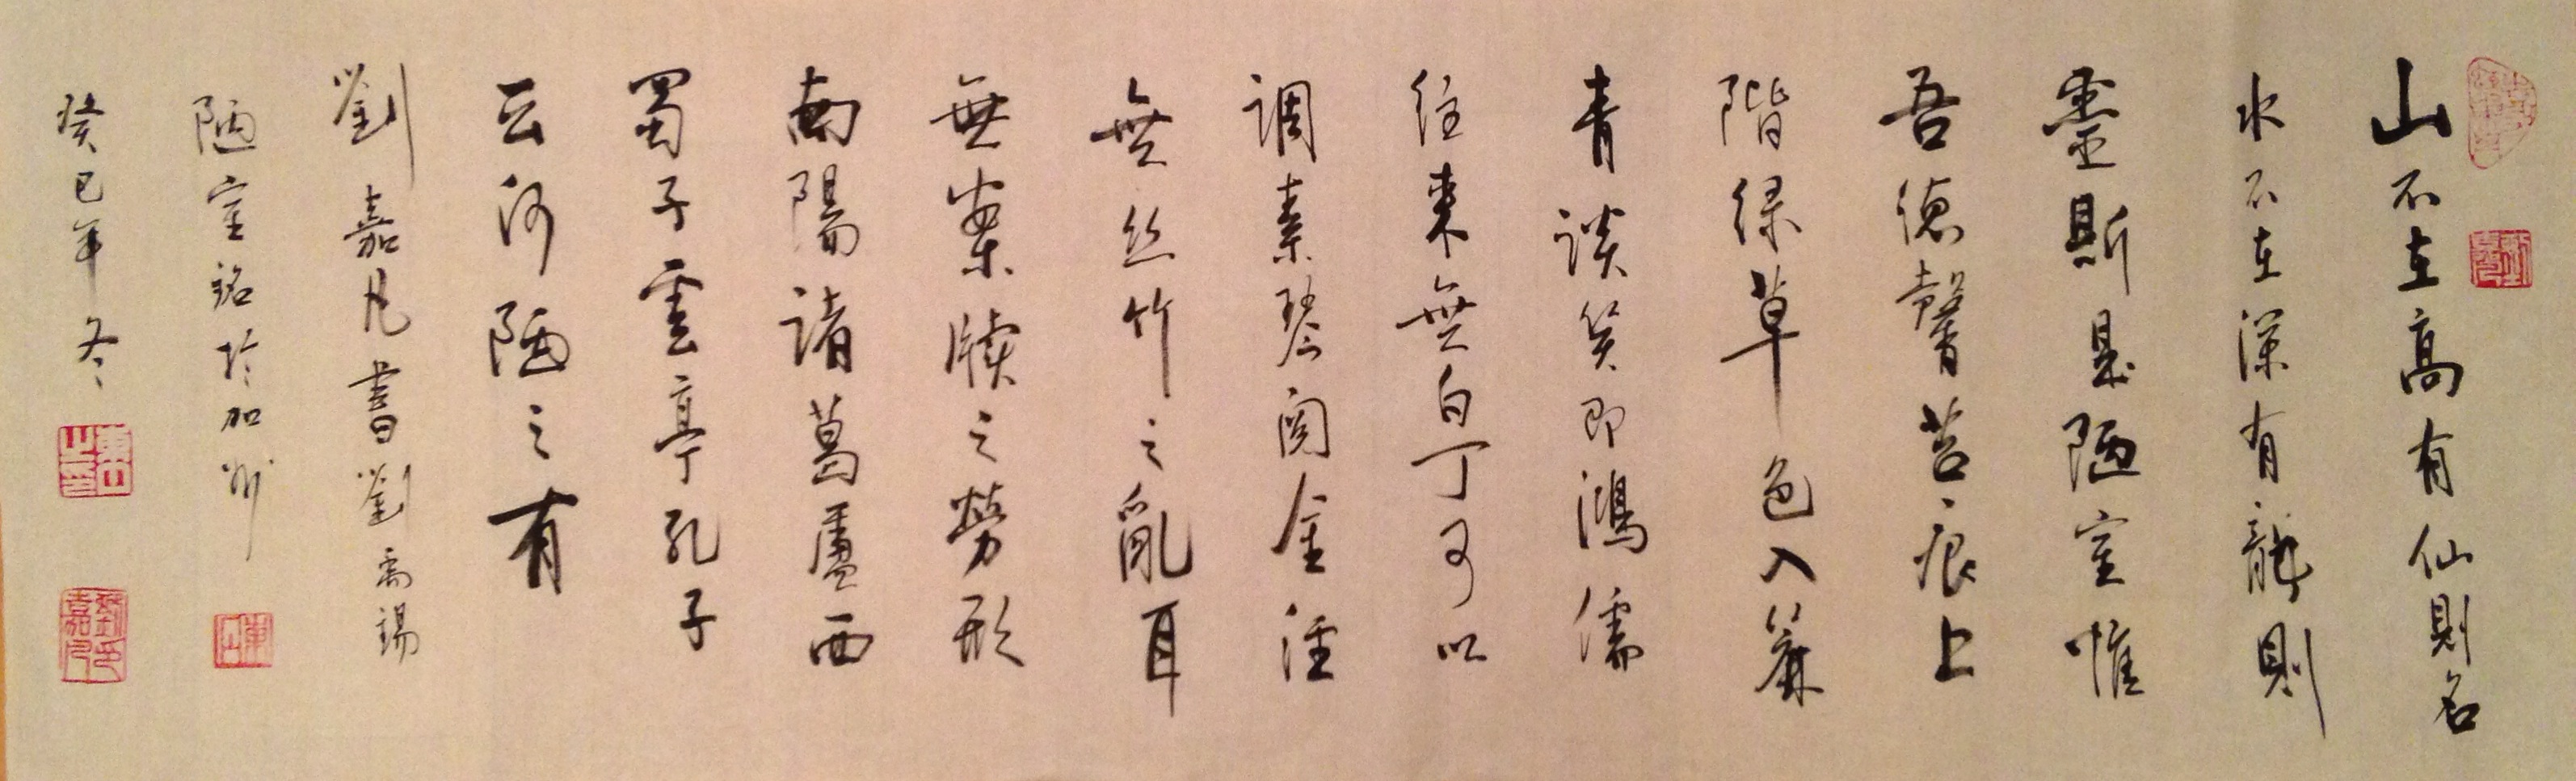 山不在高有仙則名
水不在深有龍則
靈斯是陋室惟
吾德馨苔痕上
階緑草色入簾
青談笑即鴻儒
往來無白丁可以
调素琴阅金经
無丝竹之亂耳
無案牍之勞形
南陽诸葛廬西
蜀子雲亭孔子
云何陋之有
劉嘉凡書劉禹锡
陋室铭於加州
癸巳年冬